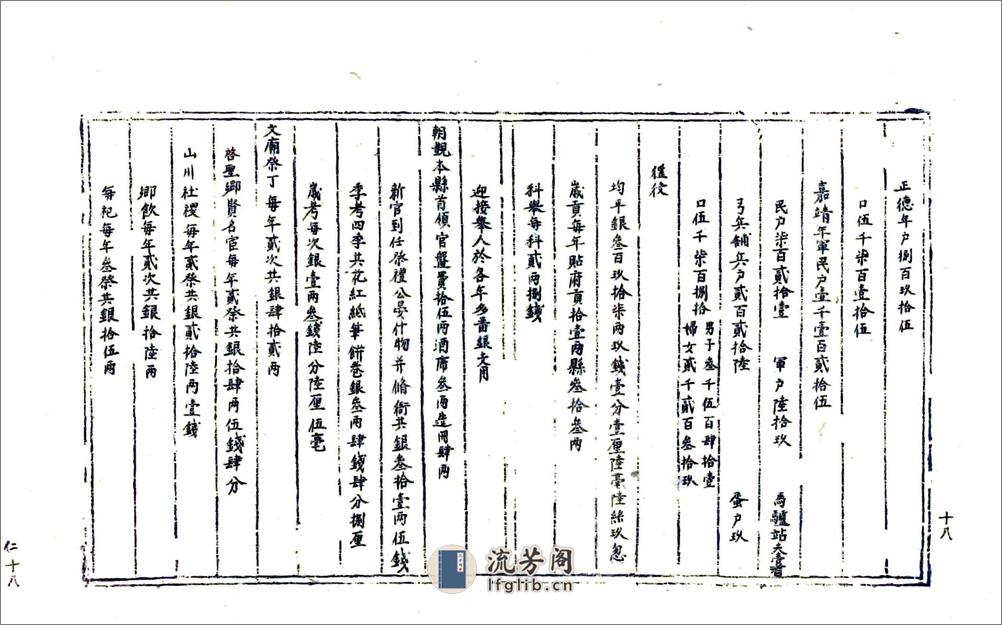 正德年户捌百玖拾伍
口伍千柒百壹拾伍
嘉靖年軍民户壹千壹百貳拾伍
民户柒百貳拾壹 軍户陸拾玖 馬驢站夫壹百
弓兵鋪兵户貳百貳拾陸 蛋户玖
口伍千柒百捌拾 男子叁千伍百肆拾壹 婦女貳千貳百叁拾玖
徭役
均平銀叁百玖拾柒兩玖錢壹分壹厘陸毫陸絲玖忽
歲貢每年貼府貢拾壹兩縣叁拾叁兩
科舉每科貳兩捌錢
迎接舉人於各年多畨銀支用
朝覲本縣首領官盤費拾伍兩酒席叁兩造冊肆兩
新官到任祭禮公宴什物并脩衙共銀叁拾壹兩伍錢
季考四季共花紅紙筆餅卷銀叁兩肆錢肆分捌厘
歲考每次銀壹兩叁錢陸分陸厘伍毫
文廟祭丁每年貳次共銀肆拾貳兩
啓聖鄉賢名宦每年貳祭共銀拾肆兩伍錢肆分
山川社稷每年貳祭共銀貳拾陸兩壹錢
鄉飲每年貳次共銀拾陸兩
每祀每年叁祭共銀拾伍兩
十八
仁十八
流芳阁
lfglib.cn